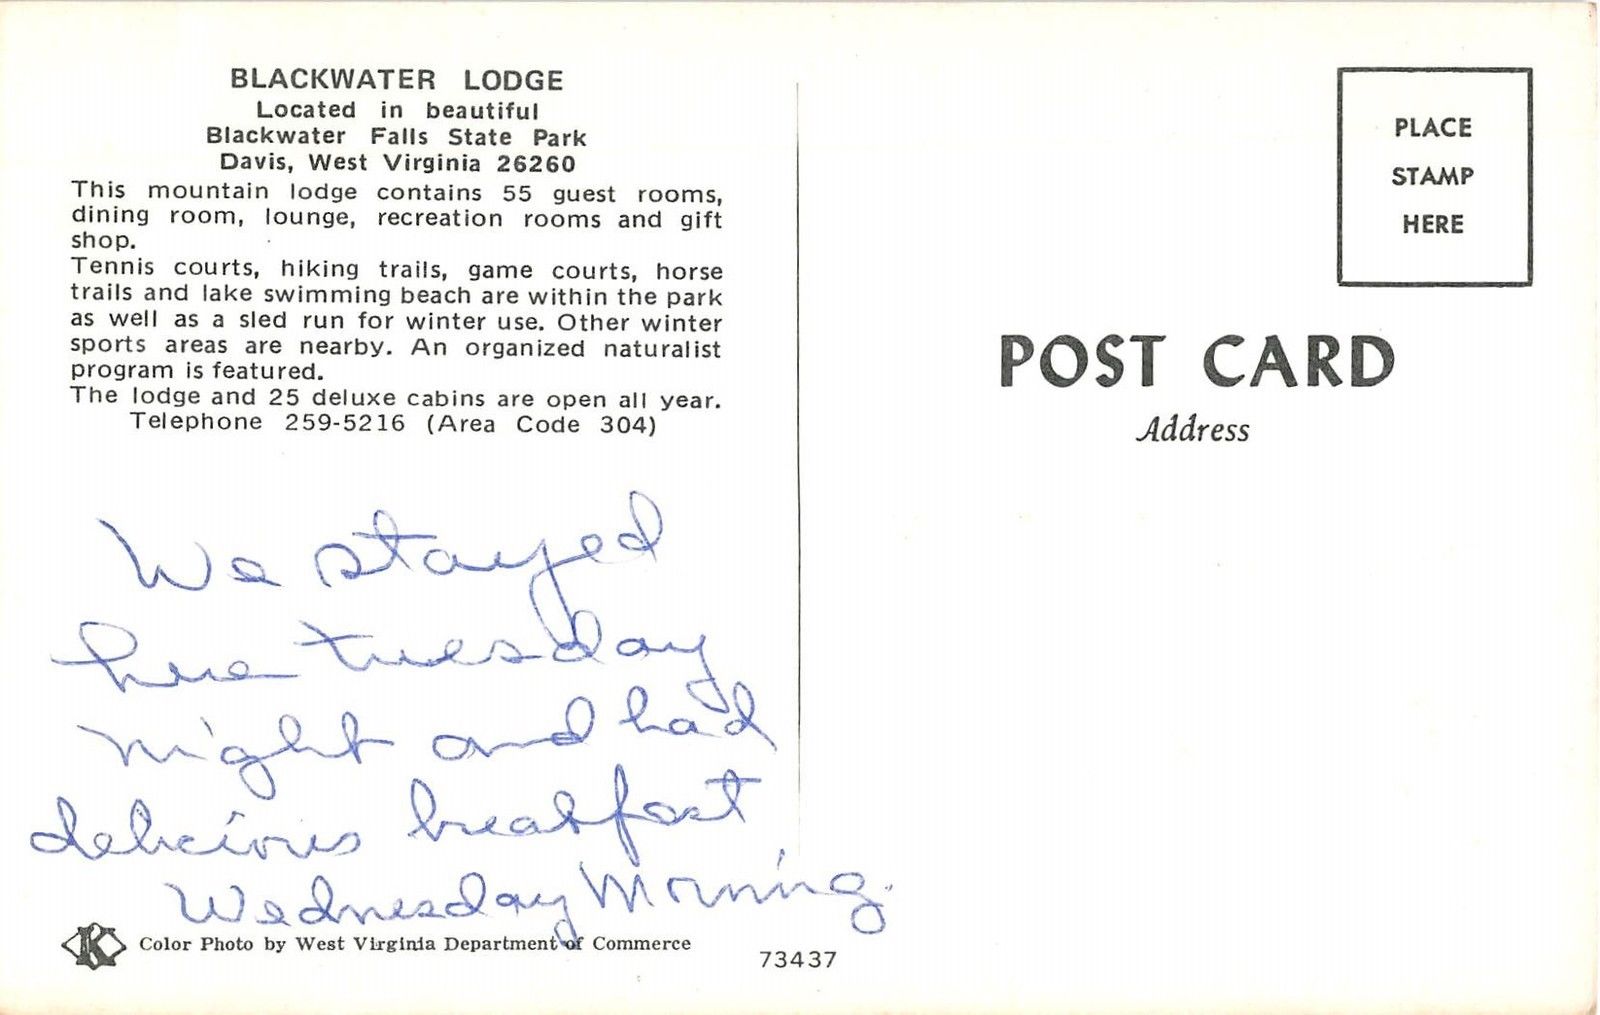 BLACKWATER LODGE
Located in beautiful
Blackwater Falls State Park
Davis, West Virginia 26260
This mountain lodge contains 55 guest rooms,
dining room, lounge, recreation rooms and gift
shop.
Tennis courts, hiking trails, game courts, horse
trails and lake swimming beach are within the park
as well as a sled run for winter use. Other winter
sports areas are nearby. An organized naturalist
program is featured.
The lodge and 25 deluxe cabins are open all year.
Telephone 259-5216 (Area Code 304)
We stayed
here tuesday
night and had
delicious breakfast
Wednesday Morning.
K
Color Photo by West Virginia Department of Commerce
73437
PLACE
STAMP
HERE
POST CARD
Address